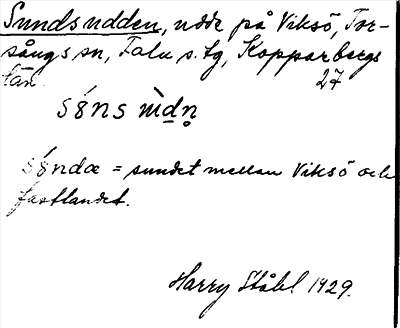 Sundsudden, udde på Viksö, Tor-
sångs sn, Falu s. tg, Kopparbergs
län. 27
søns ùdn
søndæ = sundet mellan Viksö och
fastlandet.
Harry Ståhl 1929.